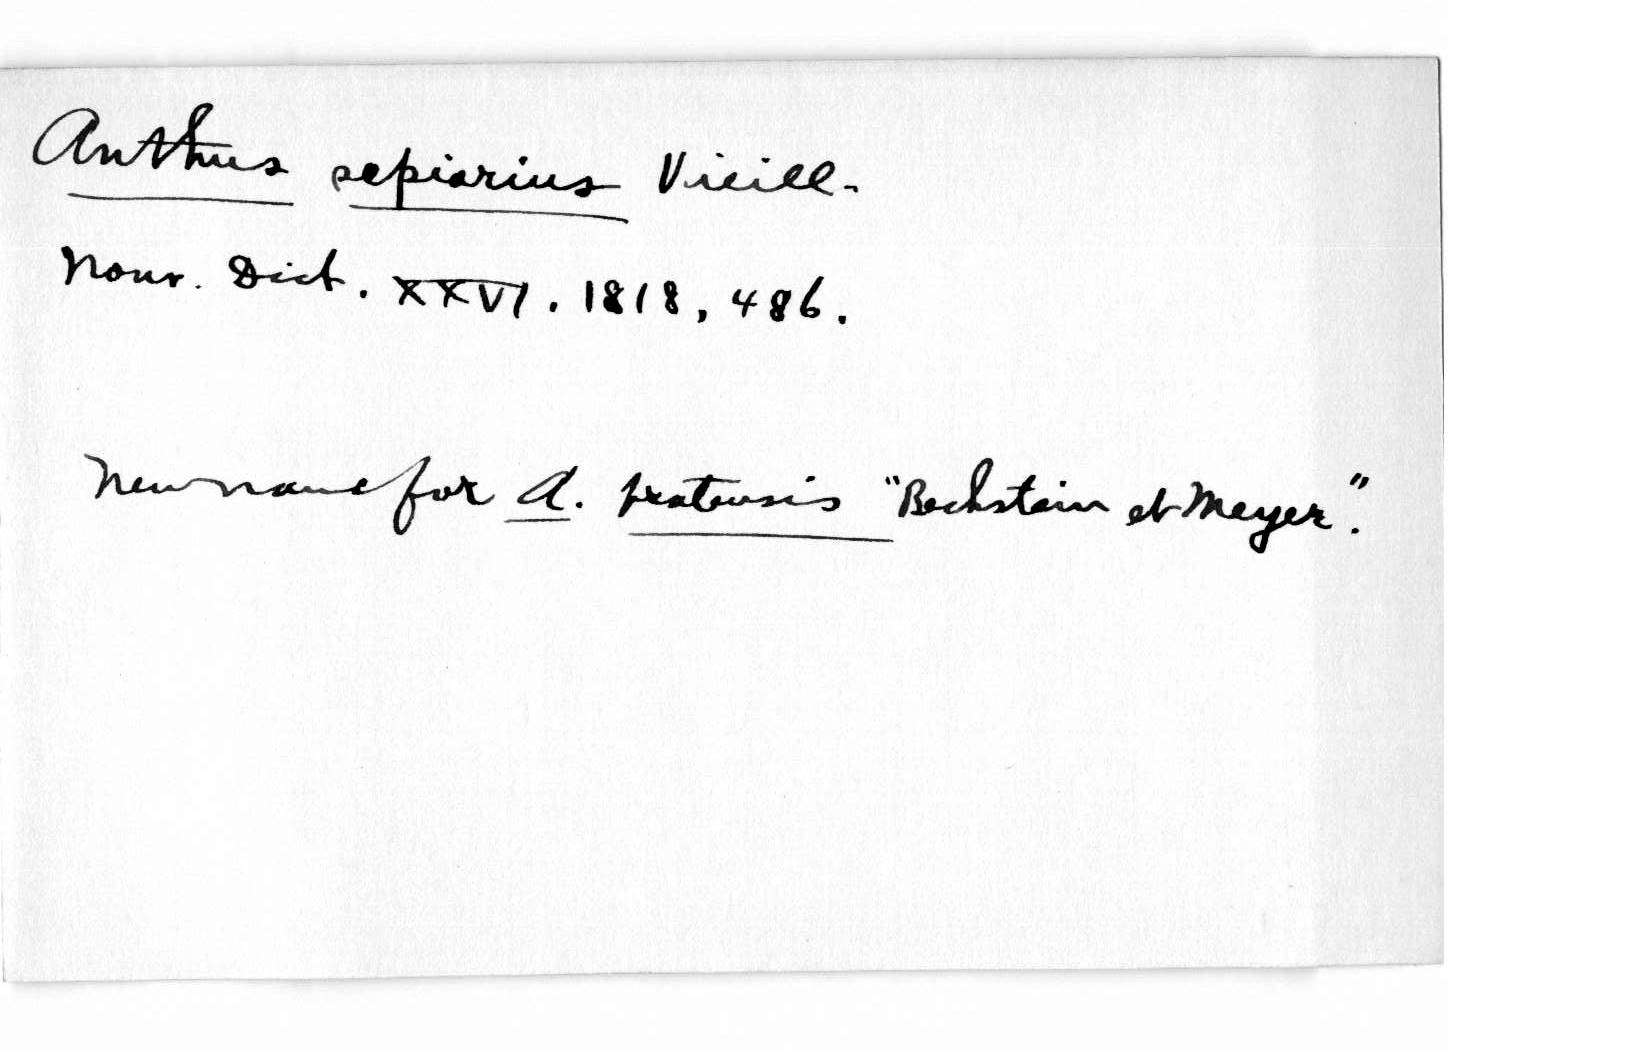 Anthus sepiarius Vieill.
Nouv. Dict. XXVI. 1818, 486.
New name for A. pratensis "Bechstein et Meyer".